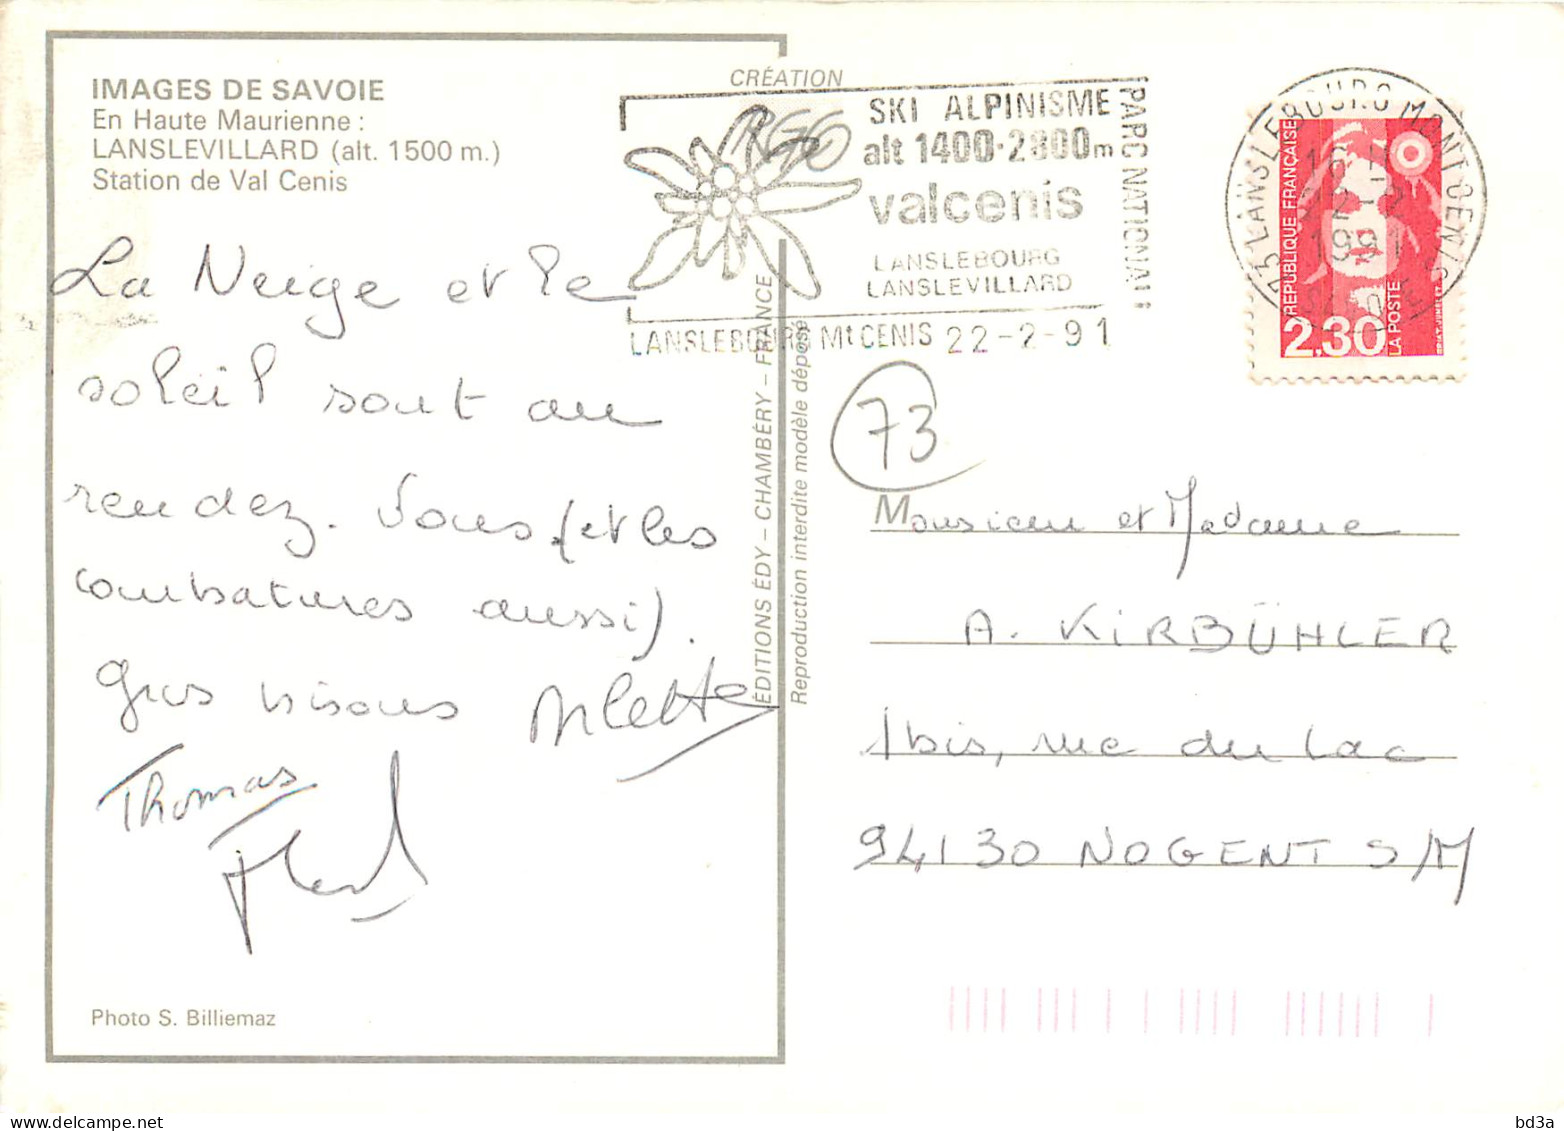 IMAGES DE SAVOIE
En Haute Maurienne :
LANSLEVILLARD (alt. 1500 m.)
Station de Val Cenis
La Neige et le
soleil sont au
rendez. Vous (et les
courbatures aussi).
Gros bisous Arlette
Thomas
Photo S. Billiemaz
CRÉATION
SKI ALPINISME
alt 1400-2800m
valcenis
LANSLEBOURG
LANSLEVILLARD
PARC NATIONAL
LANSLEBOURG Mt CENIS 22-2-91
ÉDITIONS ÉDY – CHAMBÉRY – FRANCE
Reproduction interdite modèle déposé
73 LANSLEBOURG MONT CENIS
1991
RÉPUBLIQUE FRANÇAISE
2,30
LA POSTE
73
Monsieur et Madame
A. KIRBÜHLER
1 bis, rue du Lac
94130 NOGENT S/M
bd3a